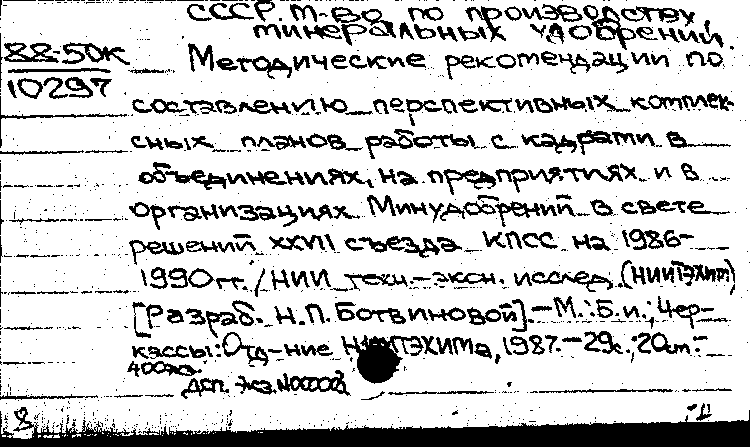 СССР. М-во по производству
минеральных удобрений.
88-50к
10297
Методические рекомендации по
составлению перспективных комплек-
сных планов работы с кадрами в
объединениях, на предприятиях и в
организациях Минудобрений в свете
решений XXVII съезда КПСС на 1986-
1990гг. / НИИ техн.-экон. исслед. (НИИТЭХИМ)
[Разраб. Н.П. Ботвиновой].-М.: Б.и.; Чер-
кассы: Отд-ние НИИТЭХИМа, 1987.-29с.; 20см.-
400экз.
ДСП. Экз.N00002
8